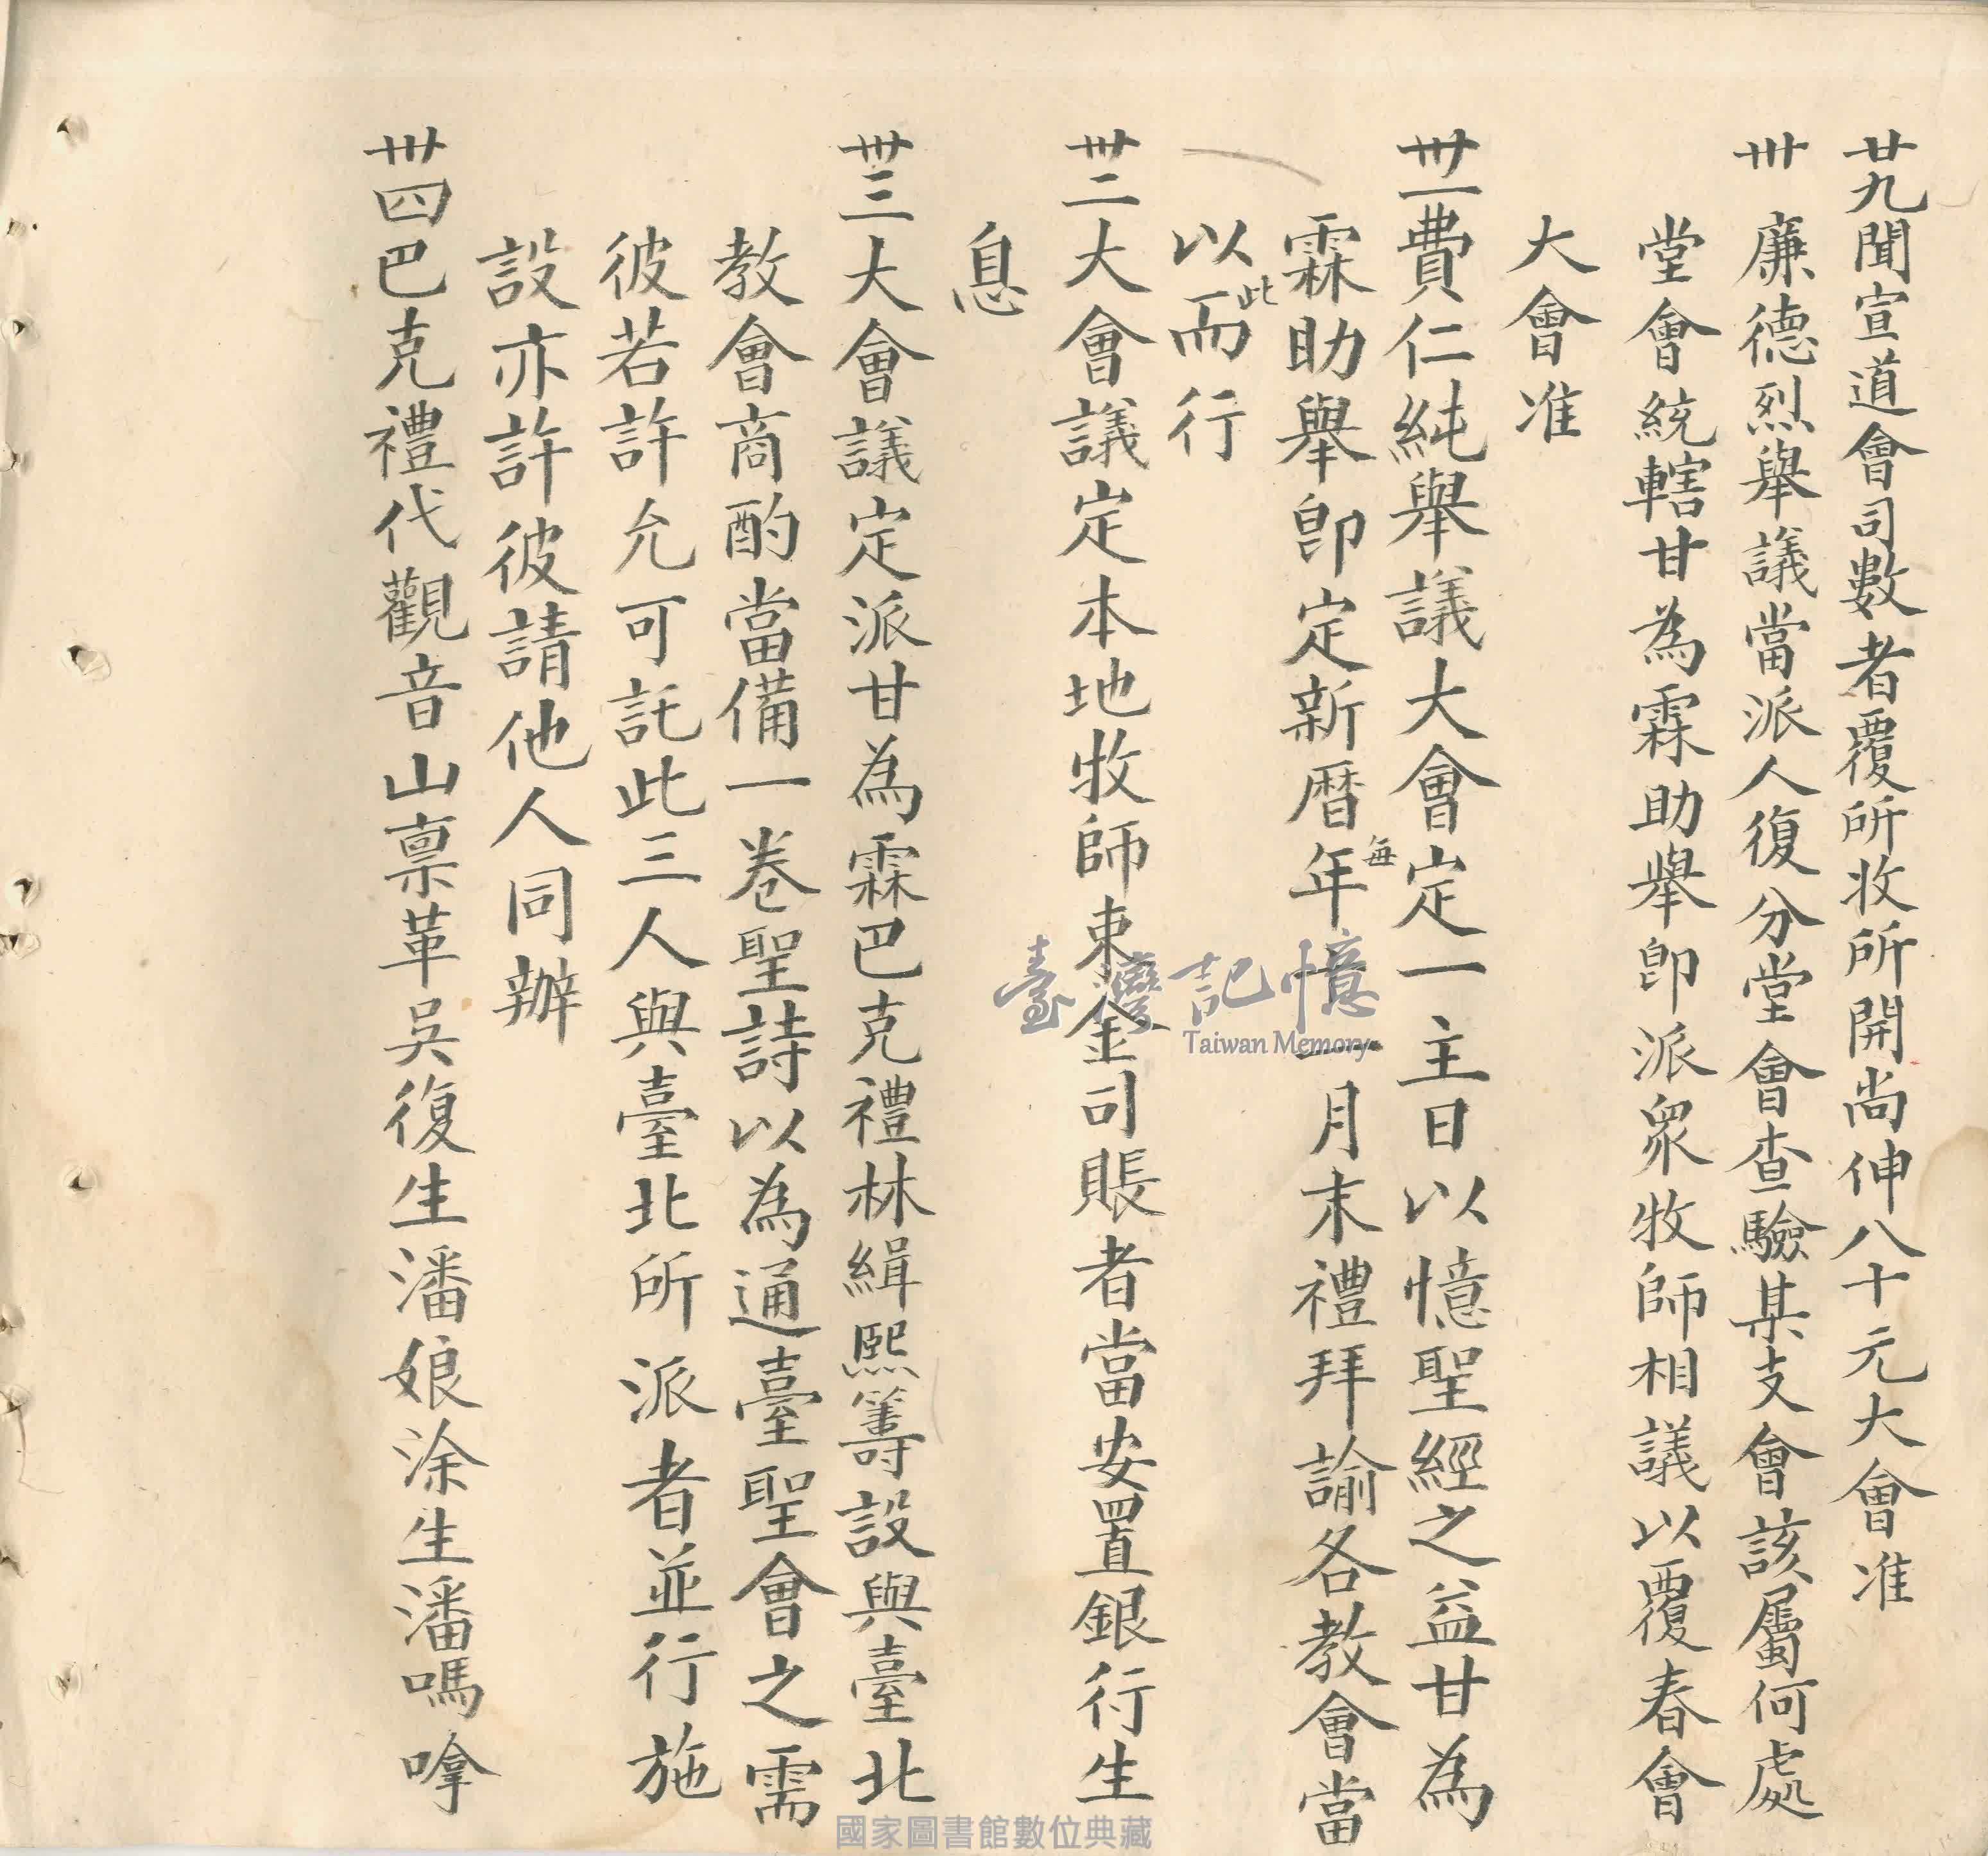 廿九聞宣道會司數者覆所收所開尚伸八十元大會准
卅 廉德烈舉議當派人復分堂會查驗某支會該屬何處
堂會統轄甘為霖助舉即派眾牧師相議以覆春會
大會准
卅一費仁純舉議大會定一主日以憶聖經之益甘為
霖助舉即定新曆每年十一月末禮拜諭各教會當
以此而行
卅二大會議定本地牧師束金司賬者當安置銀行生
息
卅三大會議定派甘為霖巴克禮林緝熙籌設與臺北
教會商酌當備一卷聖詩以為通臺聖會之需
彼若許允可託此三人與臺北所派者並行施
設亦許彼請他人同辦
卅四巴克禮代觀音山禀革吳復生潘娘涂生潘嗎拿
臺灣記憶
Taiwan Memory
國家圖書館數位典藏